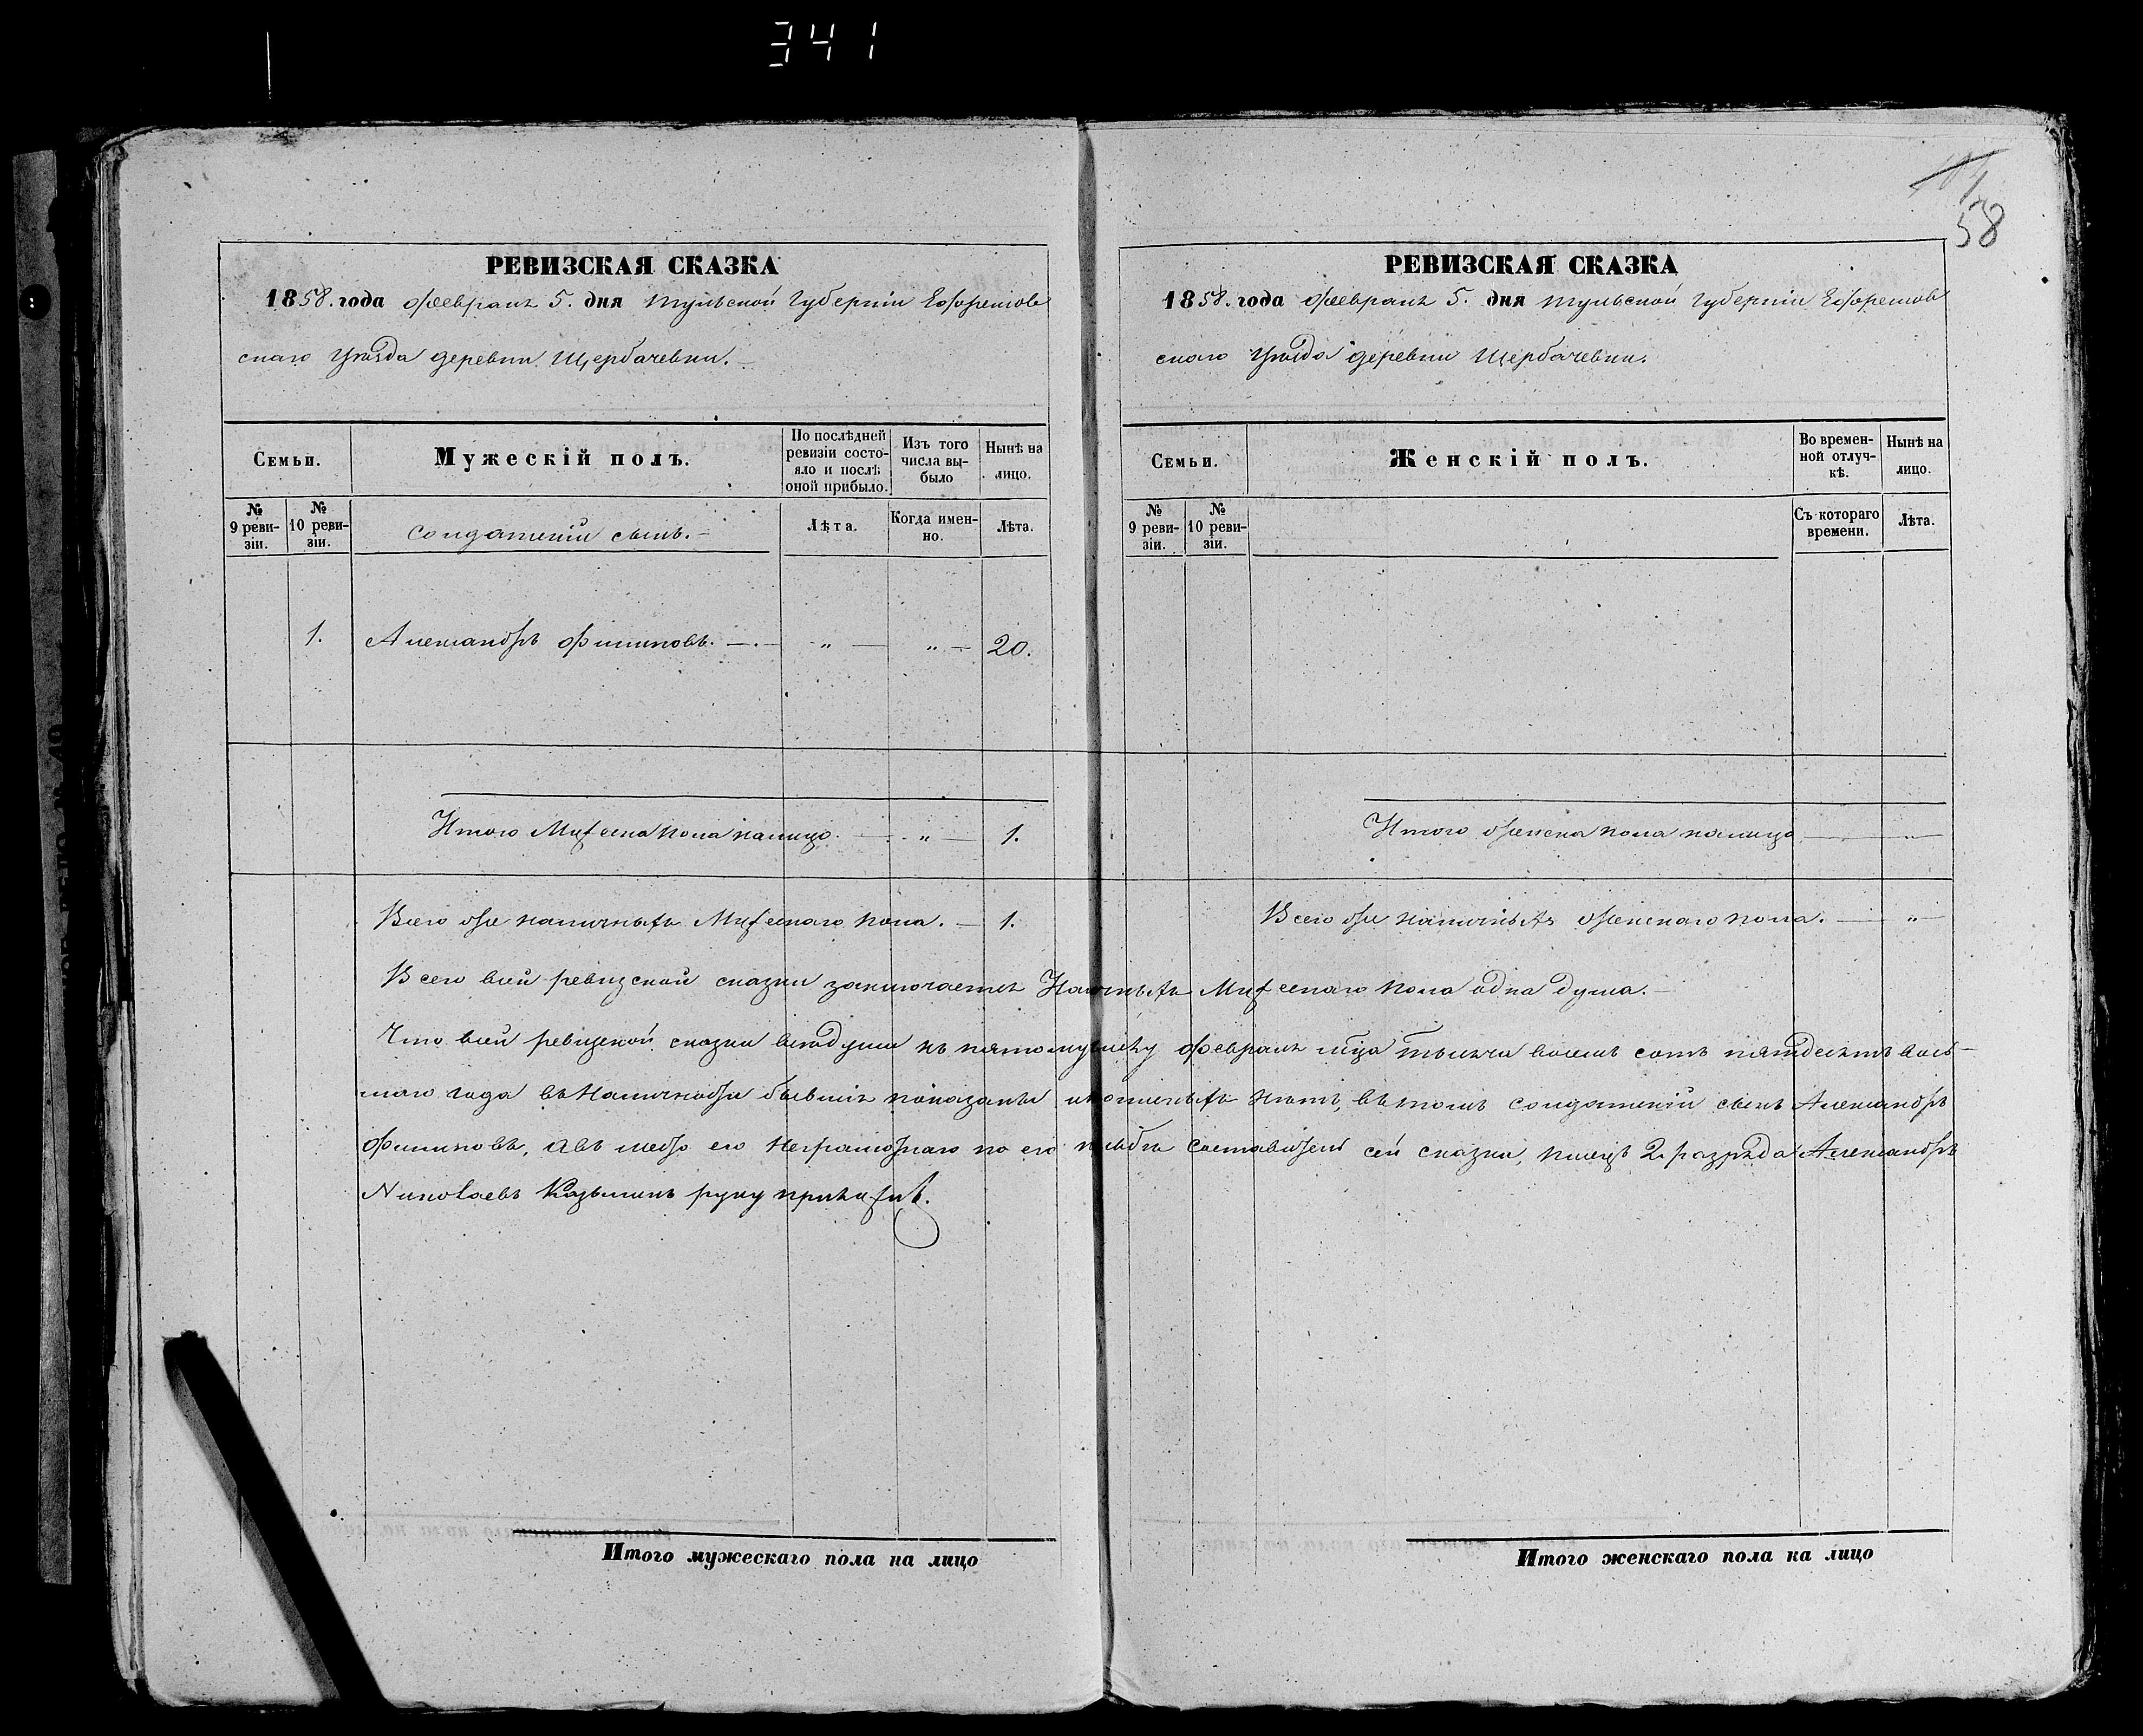 341
58
РЕВИЗСКАЯ СКАЗКА
1858. года февраля 5. дня Тульской губерніи Ефремов
скаго уѣзда деревни Щербачевки.
Семьи.
Мужескій полъ.
По послѣдней ревизіи состояло и послѣ оной прибыло.
Изъ того числа выбыло
Нынѣ на лицо.
№ 9 ревизіи.
№ 10 ревизіи.
Солдатскій сынъ.
Лѣта.
Когда именно.
Лѣта.
1. Александръ Филиповъ. — " — " — 20.
Итого Мужеска пола налицо. — " — 1.
Всего же наличныхъ Мужескаго пола. — 1.
РЕВИЗСКАЯ СКАЗКА
1858. года февраля 5. дня Тульской губерніи Ефремов
скаго уѣзда деревни Щербачевки.
Семьи.
Женскій полъ.
Во временной отлучкѣ.
Нынѣ на лицо.
№ 9 ревизіи.
№ 10 ревизіи.
Съ котораго времени.
Лѣта.
Итого женска пола налицо — "
Всего же наличныхъ женскаго пола. — " —
Всего всей ревизской сказки заключается Наличныхъ Мужескаго пола одна душа. —
Что всей ревизской сказки всѣ души къ пятому числу февраля мца тысяча восемь сотъ пятдесятъ вось-
маго года въ Наличности бывшія показаны и прописныхъ нѣтъ, въ томъ солдатскій сынъ Александръ
Филиповъ, а вмѣсто его неграмотнаго по его прозьбѣ составитель сей сказки, писецъ 2 разряда Александръ
Николаевъ Казьминъ руку приложилъ.
Итого мужескаго пола на лицо
Итого женскаго пола на лицо